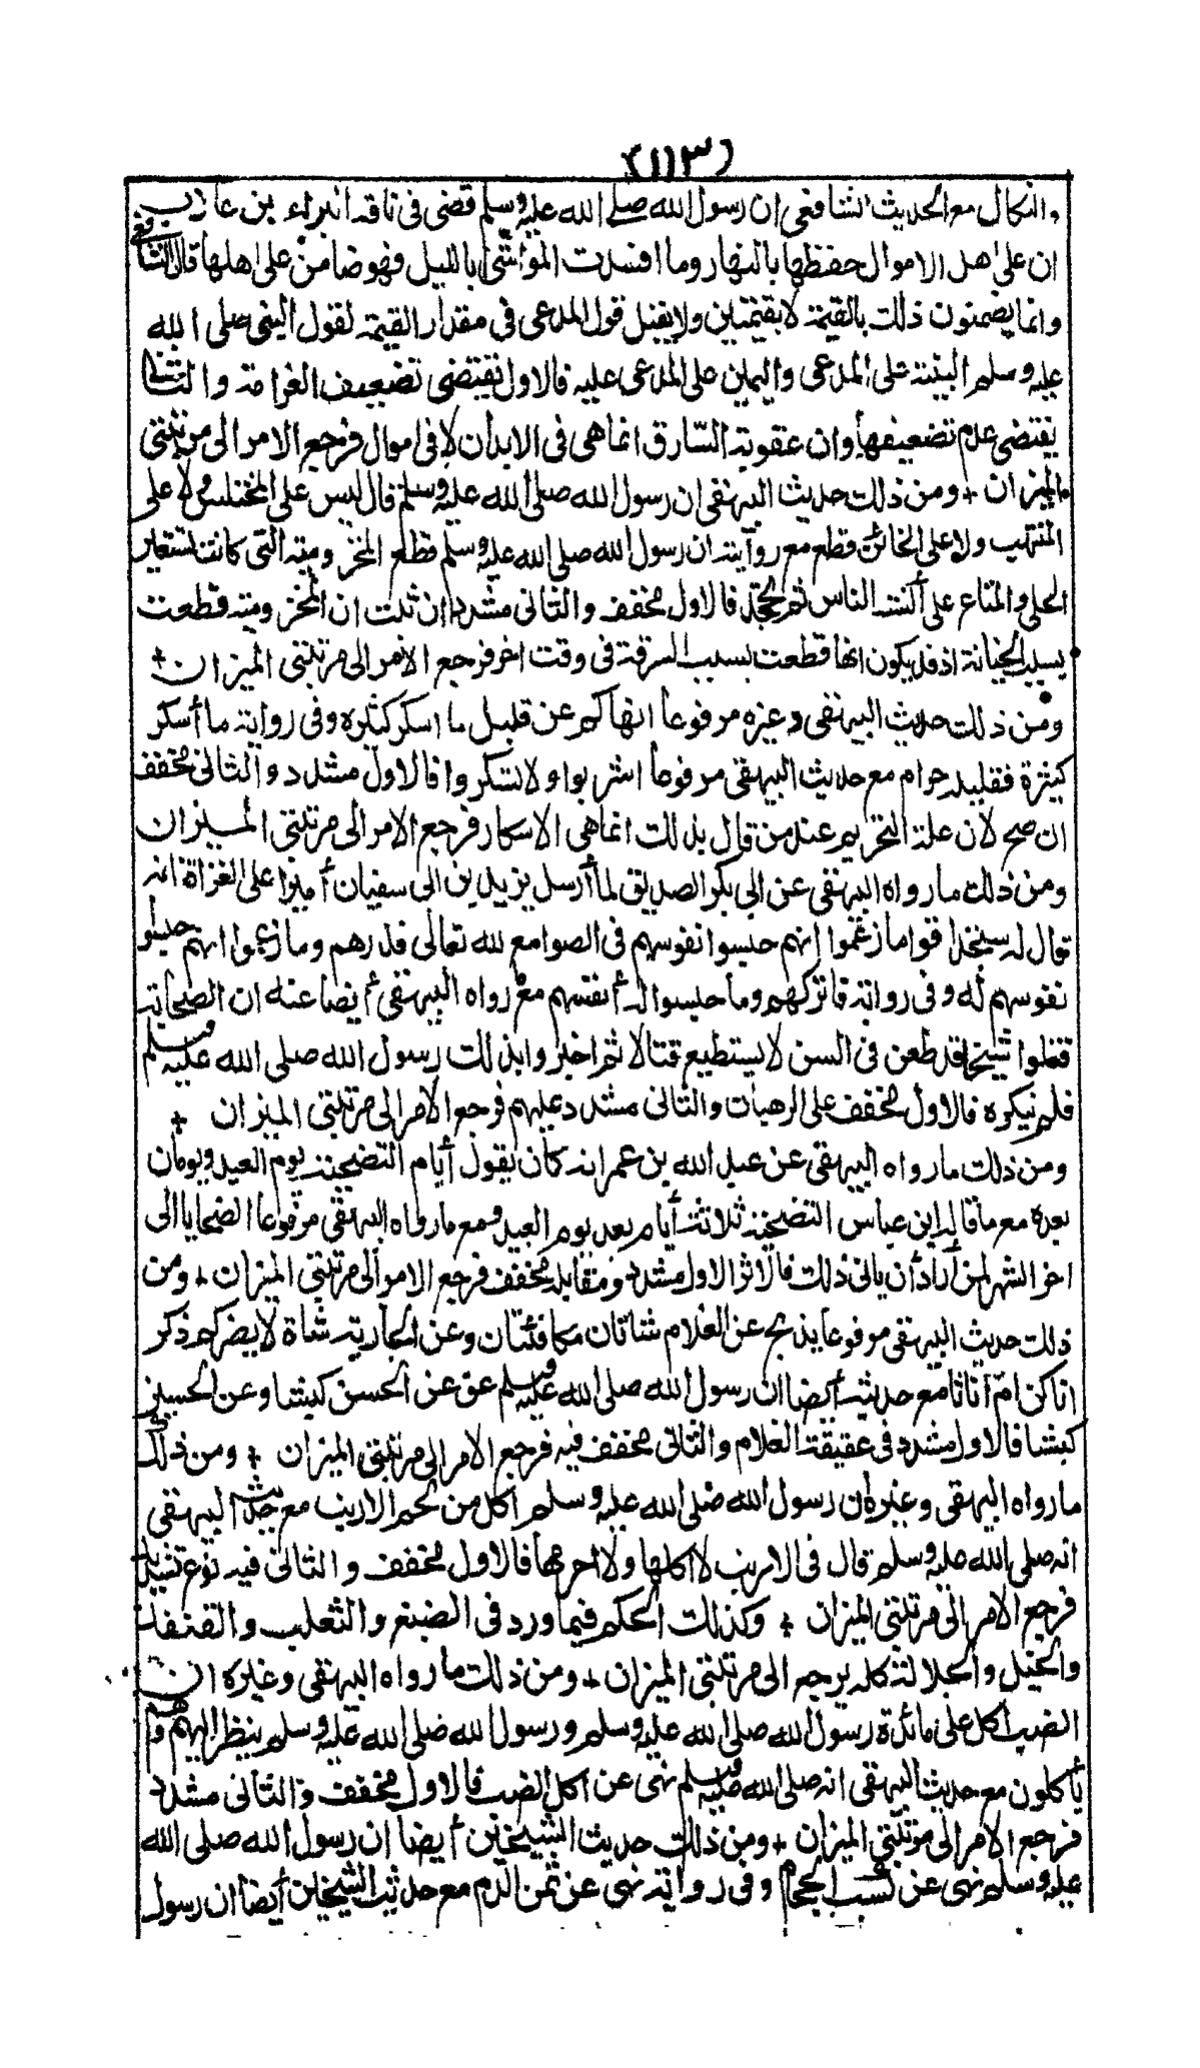 (١١٣)
والنكال مع الحديث الشافعي ان رسول الله صلى الله عليه وسلم قضى في ناقة البراء بن عازب
ان على اهل الاموال حفظها بالنهار وما افسدت المواشي بالليل فهو ضامن على اهلها قال الشافعي
وانما يضمنون ذلك بالقيمة لا بقيمتين ولا يقبل قول المدعي في مقدار القيمة لقول النبي صلى الله
عليه وسلم البينة على المدعي واليمين على المدعى عليه فالاول يقتضي تضعيف الغرامة والثاني
يقتضي عدم تضعيفها وان عقوبة السارق انما هي في الابدان لا في اموال فرجع الامر الى مرتبتي
الميزان + ومن ذلك حديث البيهقي ان رسول الله صلى الله عليه وسلم قال ليس على المختلس ولا على
المنتهب ولا على الخائن قطع مع روايته ان رسول الله صلى الله عليه وسلم قطع المخزومية التي كانت تستعير
الحلي والمتاع على ألسنة الناس ثم تجحده فالاول مخفف والثاني مشدد ان ثبت ان المخزومية قطعت
بسبب الخيانة اذ قد يكون انها قطعت بسبب السرقة في وقت اخر فرجع الامر الى مرتبتي الميزان +
ومن ذلك حديث البيهقي وغيره مرفوعا انهاكم عن قليل ما اسكر كثيره وفي رواية ما أسكر
كثيرة فقليله حرام مع حديث البيهقي مرفوعا اشربوا ولا تسكروا فالاول مشدد والثاني مخفف
ان صح لان علة التحريم عند من قال بذلك انما هي الاسكار فرجع الامر الى مرتبتي الميزان
ومن ذلك ما رواه البيهقي عن ابي بكر الصديق لما أرسل يزيد بن ابى سفيان أميرا على الغزاة انه
قال له ستجد اقواما زعموا انهم حبسوا نفوسهم في الصوامع لله تعالى فذرهم وما زعموا انهم حبسوا
نفوسهم له وفي رواية فاتركهم وما حبسوا له أنفسهم مع ما رواه البيهقي أيضا عنه ان الصحابة
قتلوا شيخا قد طعن في السن لا يستطيع قتالا ثم اخبروا بذلك رسول الله صلى الله عليه وسلم
فلم ينكره فالاول مخفف على الرهبان والثاني مشدد عليهم فرجع الامر الى مرتبتي الميزان +
ومن ذلك ما رواه البيهقي عن عبد الله بن عمر انه كان يقول أيام التضحية يوم العيد ويومان
بعده مع ما قاله ابن عباس التضحية ثلاثة أيام بعد يوم العيد ومع ما رواه البيهقي مرفوعا الضحايا الى
اخر الشهر لمن أراد أن ياتى ذلك فالاثر الاول مشدد ومقابله مخفف فرجع الامر الى مرتبتي الميزان + ومن
ذلك حديث البيهقي مرفوعا يذبح عن الغلام شاتان مكافئتان وعن الجارية شاة لا يضركم ذكر
انا كن ام اناثا مع حديثه أيضا ان رسول الله صلى الله عليه وسلم عق عن الحسن كبشا وعن الحسين
كبشا فالاول مشدد في عقيقة الغلام والثاني مخفف فيه فرجع الامر الى مرتبتي الميزان + ومن ذلك
ما رواه البيهقي وغيره ان رسول الله صلى الله عليه وسلم اكل من لحم الارنب مع حديث البيهقي
انه صلى الله عليه وسلم قال في الارنب لا اكلها ولا احرمها فالاول مخفف والثاني فيه نوع تشديد
فرجع الامر الى مرتبتي الميزان + وكذلك الحكم فيما ورد في الضبع والثعلب والقنفذ
والخيل والجلالة كله يرجع الى مرتبتي الميزان + ومن ذلك ما رواه البيهقي وغيره ان
الضب اكل على مائدة رسول الله صلى الله عليه وسلم ورسول الله صلى الله عليه وسلم ينظر اليهم وهم
يأكلون مع حديث البيهقي انه صلى الله عليه وسلم نهى عن اكل الضب فالاول مخفف والثاني مشدد
فرجع الامر الى مرتبتي الميزان + ومن ذلك حديث الشيخين أيضا ان رسول الله صلى الله
عليه وسلم نهى عن كسب الحجام وفي رواية نهى عن ثمن الدم مع حديث الشيخين أيضا ان رسول